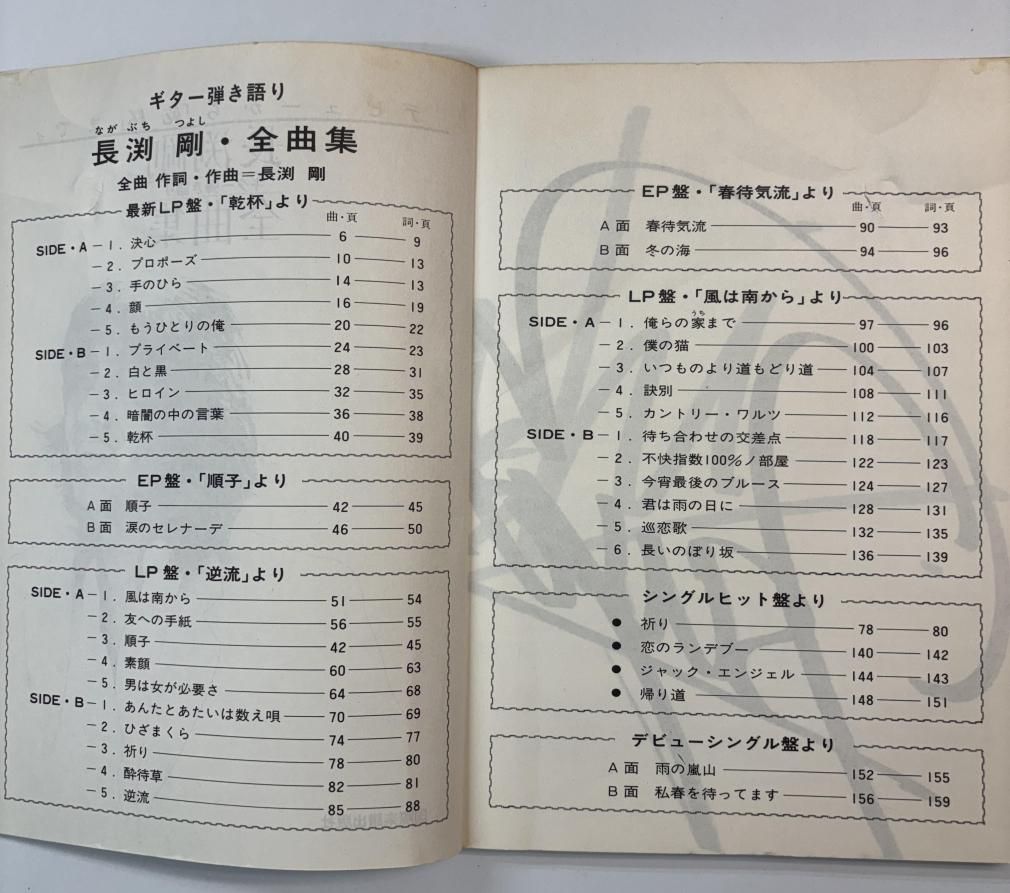 ギター弾き語り
ながぶち つよし
長渕 剛・全曲集
全曲 作詞・作曲=長渕 剛
最新LP盤・「乾杯」より
曲・頁 詞・頁
SIDE・A－1. 決心 6 9
－2. プロポーズ 10 13
－3. 手のひら 14 13
－4. 顔 16 19
－5. もうひとりの俺 20 22
SIDE・B－1. プライベート 24 23
－2. 白と黒 28 31
－3. ヒロイン 32 35
－4. 暗闇の中の言葉 36 38
－5. 乾杯 40 39
EP盤・「順子」より
A面 順子 42 45
B面 涙のセレナーデ 46 50
LP盤・「逆流」より
SIDE・A－1. 風は南から 51 54
－2. 友への手紙 56 55
－3. 順子 42 45
－4. 素顔 60 63
－5. 男は女が必要さ 64 68
SIDE・B－1. あんたとあたいは数え唄 70 69
－2. ひざまくら 74 77
－3. 祈り 78 80
－4. 酔待草 82 81
－5. 逆流 85 88
EP盤・「春待気流」より
曲・頁 詞・頁
A面 春待気流 90 93
B面 冬の海 94 96
LP盤・「風は南から」より
うち
SIDE・A－1. 俺らの家まで 97 96
－2. 僕の猫 100 103
－3. いつものより道もどり道 104 107
－4. 訣別 108 111
－5. カントリー・ワルツ 112 116
SIDE・B－1. 待ち合わせの交差点 118 117
－2. 不快指数100%ノ部屋 122 123
－3. 今宵最後のブルース 124 127
－4. 君は雨の日に 128 131
－5. 巡恋歌 132 135
－6. 長いのぼり坂 136 139
シングルヒット盤より
● 祈り 78 80
● 恋のランデブー 140 142
● ジャック・エンジェル 144 143
● 帰り道 148 151
デビューシングル盤より
A面 雨の嵐山 152 155
B面 私春を待ってます 156 159